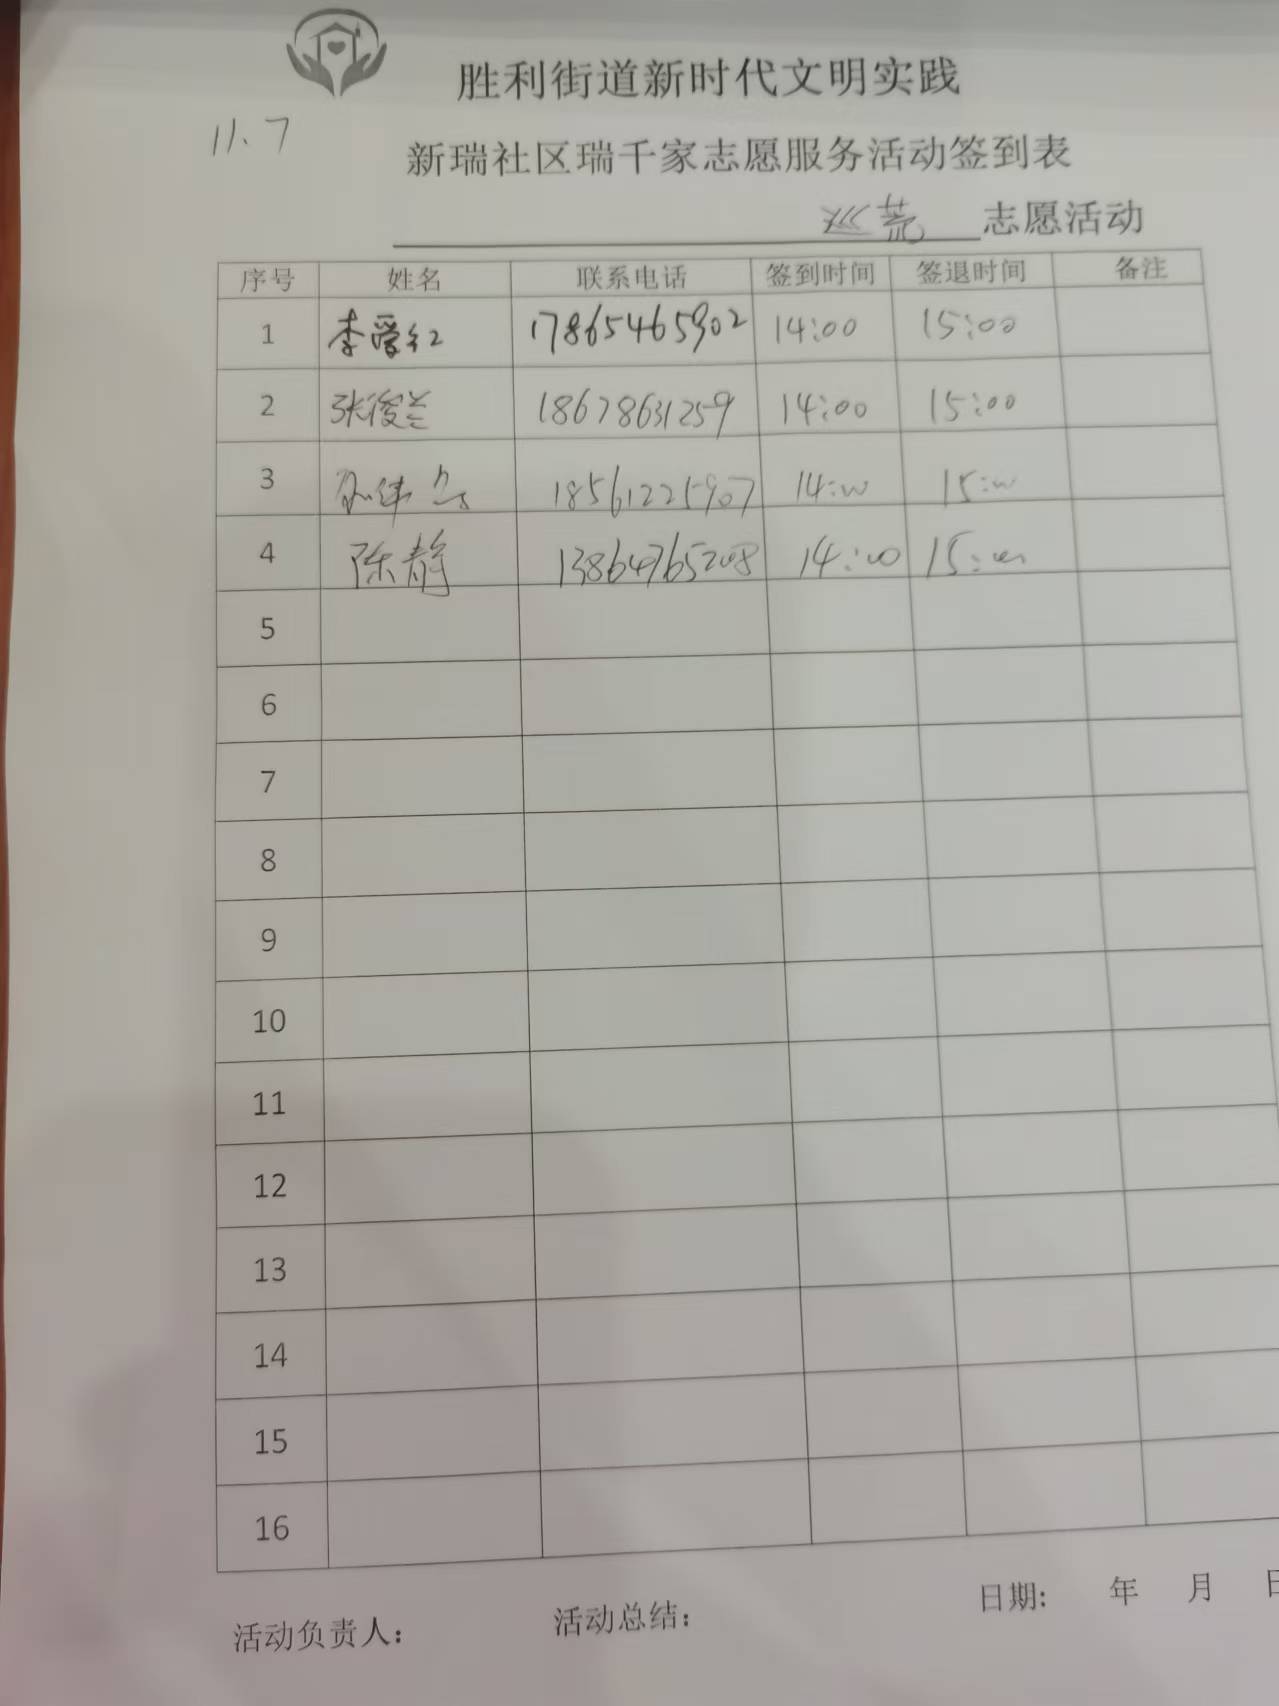 胜利街道新时代文明实践
11.7
新瑞社区瑞千家志愿服务活动签到表
巡荒 志愿活动
序号 姓名 联系电话 签到时间 签退时间 备注
1 李爱红 17865465902 14:00 15:00
2 张俊兰 18678631259 14:00 15:00
3 18561225907 14:00 15:00
4 陈静 13864765208 14:00 15:00
5
6
7
8
9
10
11
12
13
14
15
16
活动负责人： 活动总结： 日期： 年 月 日